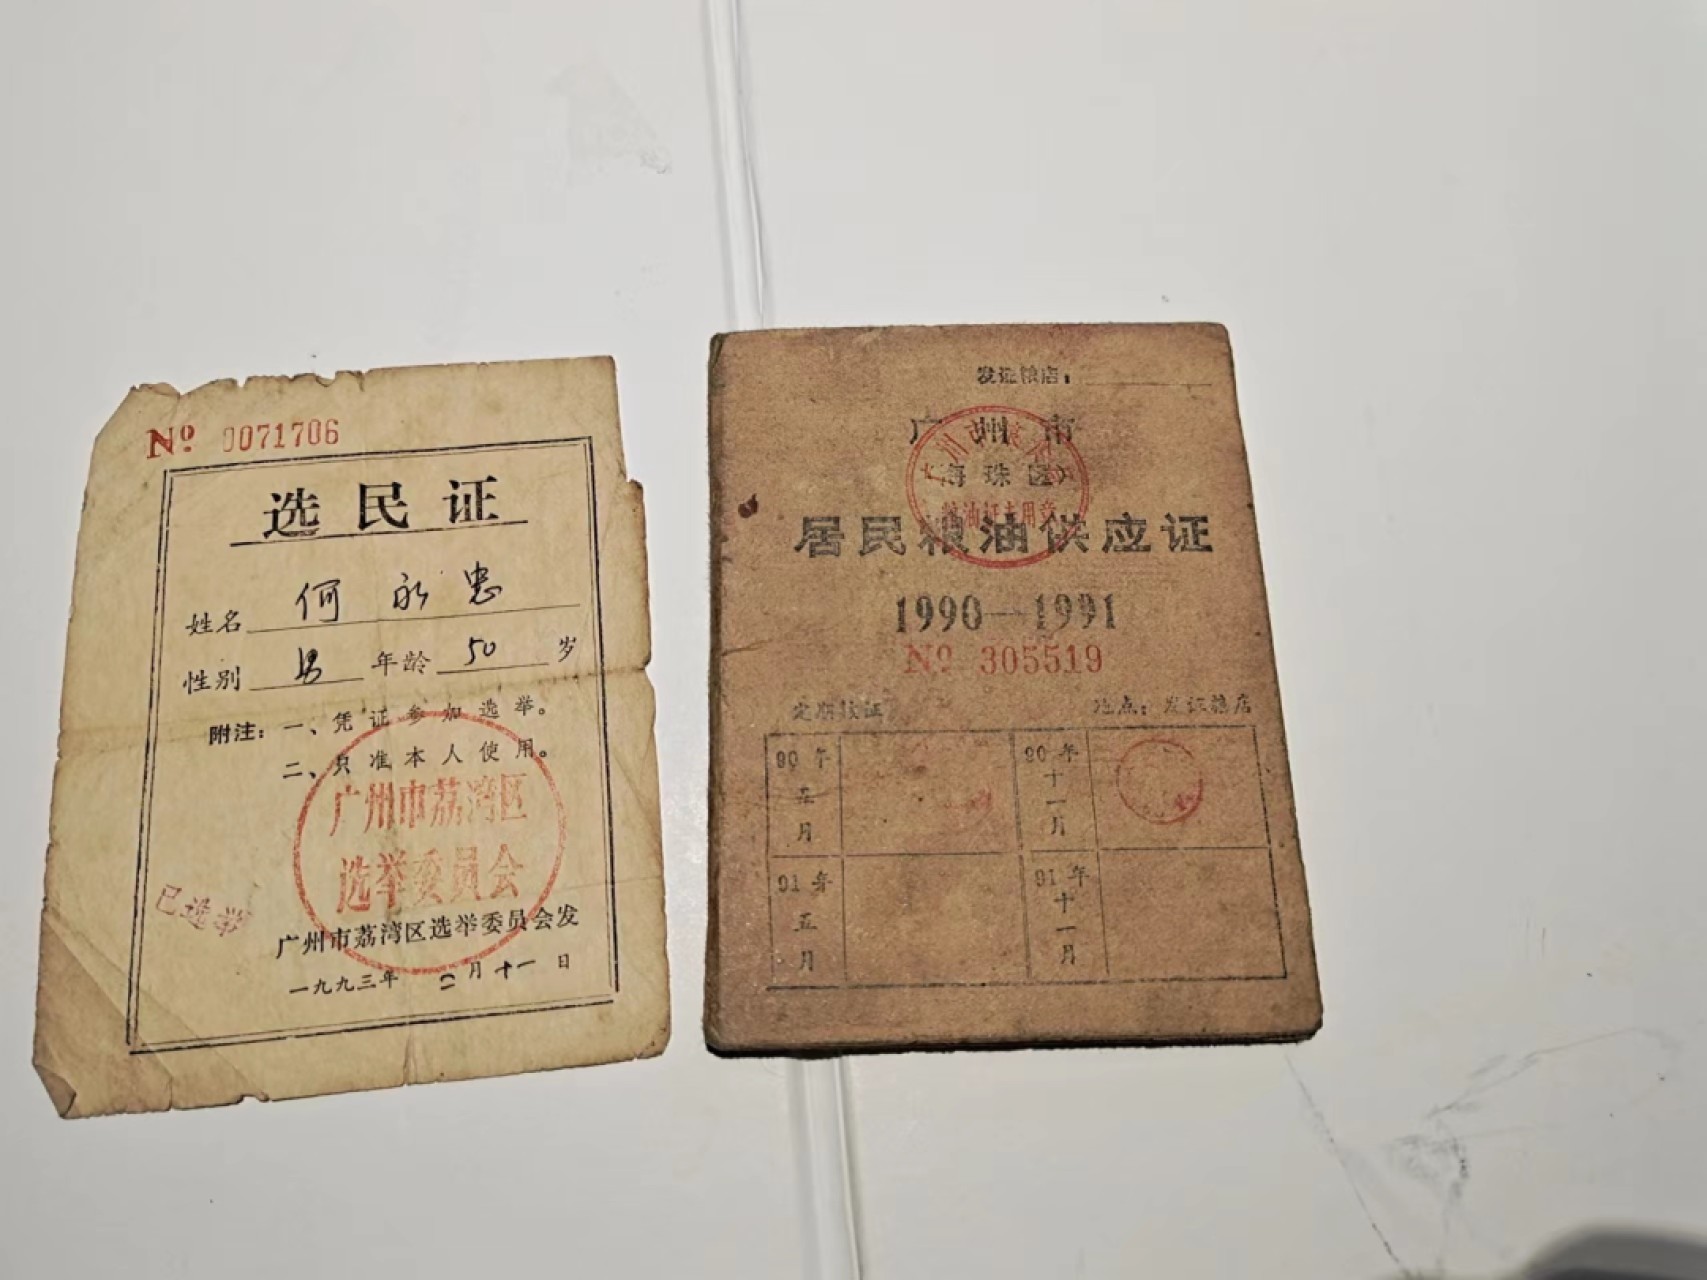 Nº 0071706
选民证
姓名 何永忠
性别 男 年龄 50 岁
附注：一、凭证参加选举。
二、只准本人使用。
广州市荔湾区
选举委员会
已选举
广州市荔湾区选举委员会发
一九九三年 二月十一日
发证粮店：
广州市
(海珠区)
粮油证专用章
居民粮油供应证
1990—1991
Nº 305519
定期验证 地点：发证粮店
90年五月 90年十一月
91年五月 91年十一月